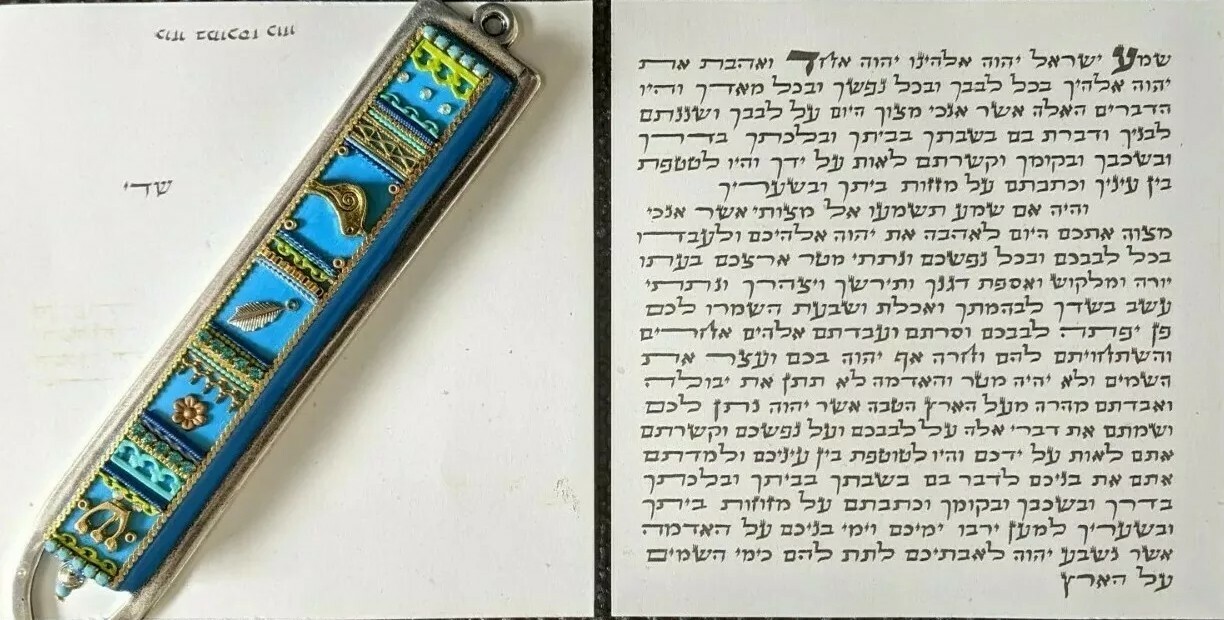 כוזו במוכסז כוזו
שדי
שמע ישראל יהוה אלהינו יהוה אחד ואהבת את
יהוה אלהיך בכל לבבך ובכל נפשך ובכל מאדך והיו
הדברים האלה אשר אנכי מצוך היום על לבבך ושננתם
לבניך ודברת בם בשבתך בביתך ובלכתך בדרך
ובשכבך ובקומך וקשרתם לאות על ידך והיו לטטפת
בין עיניך וכתבתם על מזזות ביתך ובשעריך
והיה אם שמע תשמעו אל מצותי אשר אנכי
מצוה אתכם היום לאהבה את יהוה אלהיכם ולעבדו
בכל לבבכם ובכל נפשכם ונתתי מטר ארצכם בעתו
יורה ומלקוש ואספת דגנך ותירשך ויצהרך ונתתי
עשב בשדך לבהמתך ואכלת ושבעת השמרו לכם
פן יפתה לבבכם וסרתם ועבדתם אלהים אחרים
והשתחויתם להם וחרה אף יהוה בכם ועצר את
השמים ולא יהיה מטר והאדמה לא תתן את יבולה
ואבדתם מהרה מעל הארץ הטבה אשר יהוה נתן לכם
ושמתם את דברי אלה על לבבכם ועל נפשכם וקשרתם
אתם לאות על ידכם והיו לטוטפת בין עיניכם ולמדתם
אתם את בניכם לדבר בם בשבתך בביתך ובלכתך
בדרך ובשכבך ובקומך וכתבתם על מזוזות ביתך
ובשעריך למען ירבו ימיכם וימי בניכם על האדמה
אשר נשבע יהוה לאבתיכם לתת להם כימי השמים
על הארץ